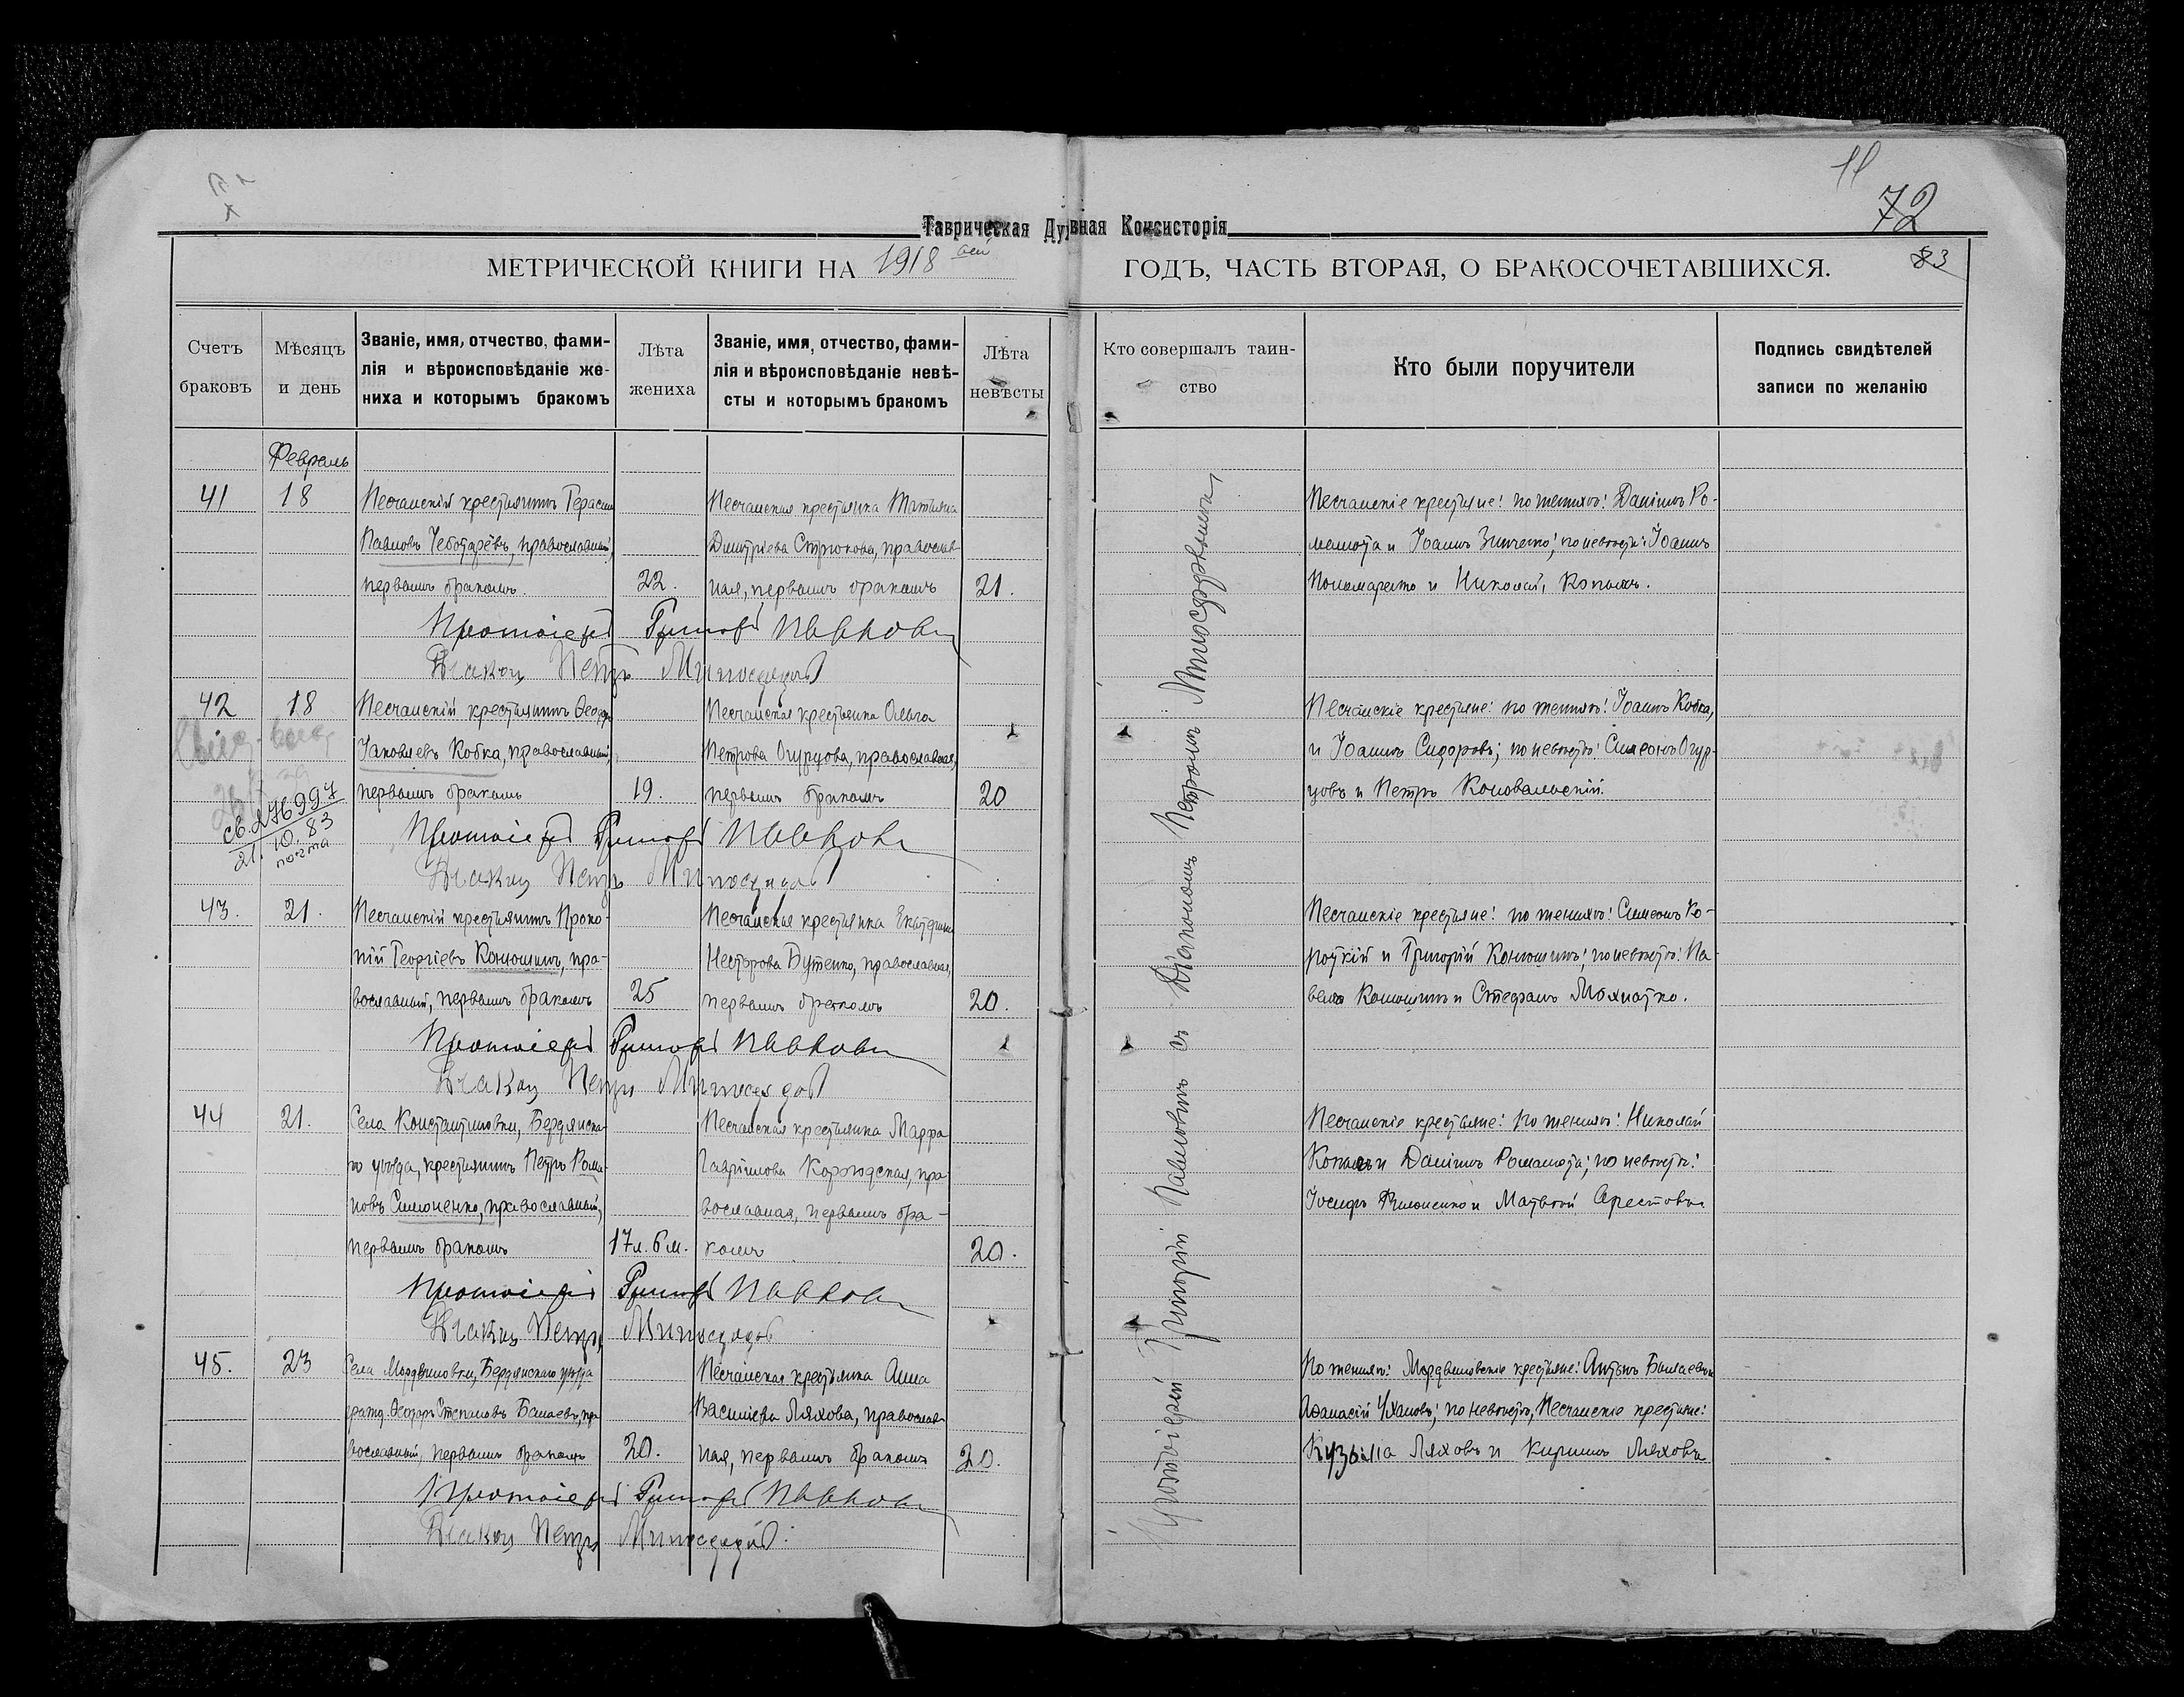 11
72
83
Таврическая Духовная Консисторія
МЕТРИЧЕСКОЙ КНИГИ НА 1918 ГОДЪ, ЧАСТЬ ВТОРАЯ, О БРАКОСОЧЕТАВШИХСЯ.
Счетъ браковъ
Мѣсяцъ и день
Званіе, имя, отчество, фами-
лія и вѣроисповѣданіе же-
ниха и которымъ бракомъ
Лѣта жениха
Званіе, имя, отчество, фами-
лія и вѣроисповѣданіе невѣ-
сты и которымъ бракомъ
Лѣта невѣсты
Кто совершалъ таин-
ство
Кто были поручители
Подпись свидѣтелей
записи по желанію
Февраль
41
18
Песчанскій крестьянинъ Герасим
Павловъ Чеботарёвъ, православный,
первымъ бракомъ.
22.
Песчанская крестьянка Татьяна
Димитріева Стрюкова, православ-
ная, первымъ бракомъ
21.
Песчанскіе крестьяне: по женихѣ: Даніилъ Ро-
манюта и Іоаннъ Зинченко; по невѣстѣ: Іоаннъ
Пономаренко и Николай Копылъ.
Протоіерей Григорій Павлови
Діаконъ Петръ Милосердов
42
18
Песчанскій крестьянинъ Ѳеодоръ
Іаковлевъ Кобка, православный,
первымъ бракомъ
19.
Песчанская крестьянка Ольга
Петрова Огурцова, православная,
первымъ бракомъ
20
Песчанскіе крестьяне: по женихѣ: Іоаннъ Кобка,
и Іоаннъ Сидоровъ; по невѣстѣ: Симеонъ Огур-
цовъ и Петръ Коновальскій.
св. 276997
21.10.83
почта
Протоіерей Григорій Павлови
Діаконъ Петръ Милосердов
43.
21.
Песчанскій крестьянинъ Проко-
пій Георгіевъ Конюшинъ, пра-
вославный, первымъ бракомъ
25
Песчанская крестьянка Екатерина
Несторова Бутенко, православная,
первымъ бракомъ
20.
Песчанскіе крестьяне: по женихѣ: Симеонъ Ко-
роткій и Григорій Конюшинъ; по невѣстѣ: Па-
велъ Конюшинъ и Стефанъ Мохнатко.
Протоіерей Григорій Павлови
Діаконъ Петръ Милосердов
44
21.
Села Константиновки, Бердянска-
го уѣзда, крестьянинъ Петръ Рома-
новъ Симоненко, православный,
первымъ бракомъ
17л. 6м.
Песчанская крестьянка Марфа
Гавріилова Коржодская, пра-
вославная, первымъ бра-
комъ
20.
Песчанскіе крестьяне: по женихѣ: Николай
Копылъ и Даніилъ Романюта; по невѣстѣ:
Іосифъ Филоненко и Матвѣй Арестовъ
Протоіерей Григорій Павлови
Діаконъ Петръ Милосердов
45.
23
Села Мордвиновки, Бердянскаго уѣзда
гражд. Ѳеодоръ Степановъ Балаевъ, пра-
вославный, первымъ бракомъ
20.
Песчанская крестьянка Анна
Василіева Ляхова, православ-
ная, первымъ бракомъ
20.
По женихѣ: Мордвиновскіе крестьяне: Антонъ Балаевъ и
Аѳанасій Ухановъ; по невѣстѣ, Песчанскіе крестьяне:
Кузьма Ляховъ и Кириллъ Ляховъ
Протоіерей Григорій Павлови
Діаконъ Петръ Милосердов.
Протоіерей Григорій Павловичъ съ Діакономъ Петромъ Милосердовымъ